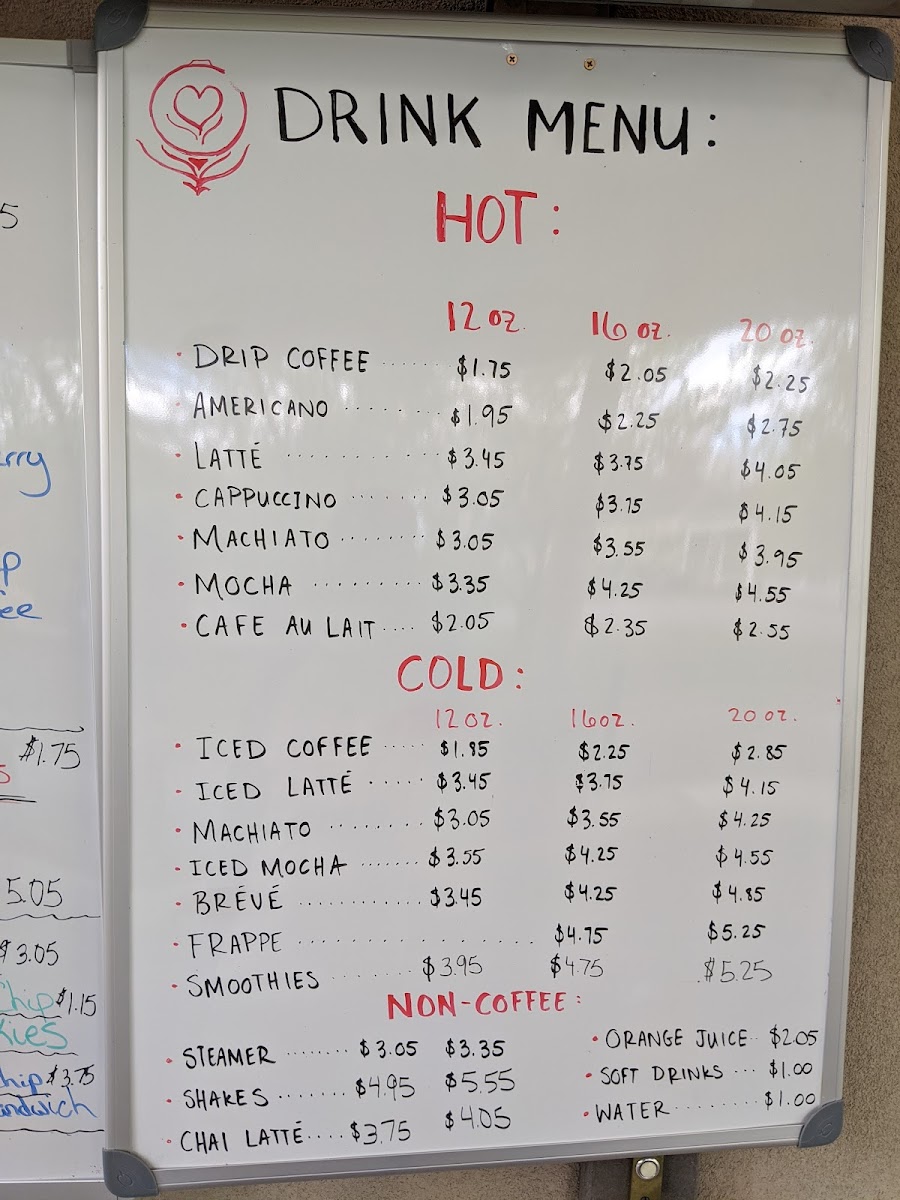 DRINK MENU:
HOT:
12 oz. 16 oz. 20 oz.
• DRIP COFFEE ...... $1.75 $2.05 $2.25
• AMERICANO ........ $1.95 $2.25 $2.75
• LATTÉ ......... $3.45 $3.75 $4.05
• CAPPUCCINO ....... $3.05 $3.75 $4.15
• MACHIATO ........ $3.05 $3.55 $3.95
• MOCHA ......... $3.35 $4.25 $4.55
• CAFE AU LAIT .... $2.05 $2.35 $2.55
COLD:
12 oz. 16 oz. 20 oz.
• ICED COFFEE ..... $1.85 $2.25 $2.85
• ICED LATTÉ ...... $3.45 $3.75 $4.15
• MACHIATO ........ $3.05 $3.55 $4.25
• ICED MOCHA ....... $3.55 $4.25 $4.55
• BRÉVÉ ............ $3.45 $4.25 $4.85
• FRAPPE .................. $4.75 $5.25
• SMOOTHIES ....... $3.95 $4.75 $5.25
NON-COFFEE:
• STEAMER ........ $3.05 $3.35
• SHAKES ......... $4.95 $5.55
• CHAI LATTÉ .... $3.75 $4.05
• ORANGE JUICE .. $2.05
• SOFT DRINKS ... $1.00
• WATER ......... $1.00
5
rry
p
ee
$1.75
s
5.05
$3.05
Chip $1.15
kies
hip $3.75
andwich